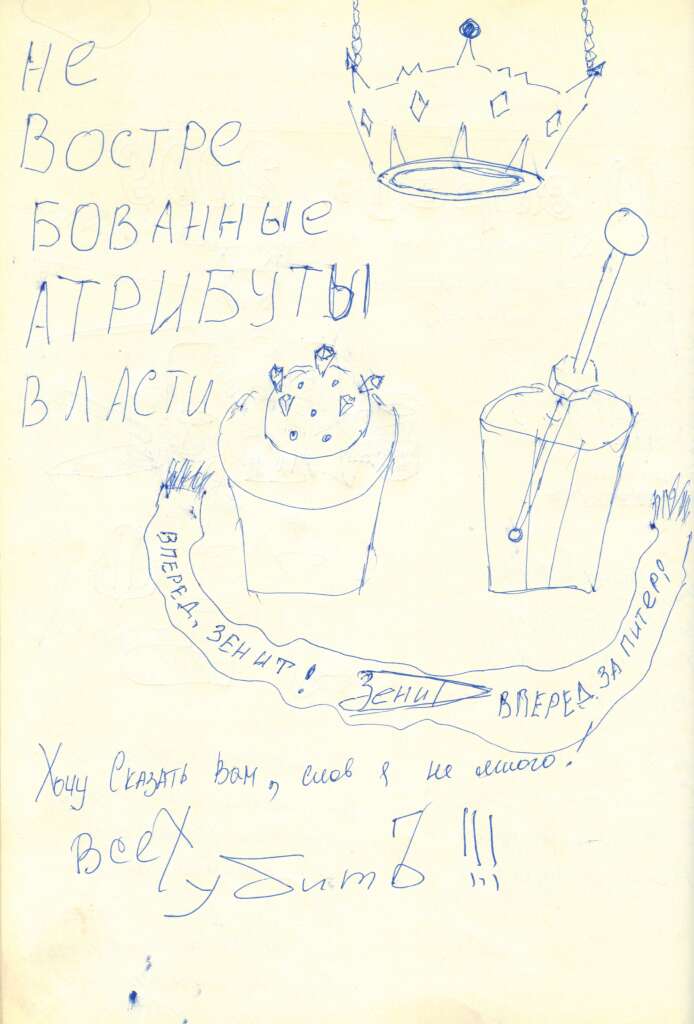 НЕ
ВОСТРЕ
БОВАННЫЕ
АТРИБУТЫ
ВЛАСТИ
ВПЕРЕД, ЗЕНИТ!
Зенит
ВПЕРЕД ЗА ПИТЕР!
Хочу Сказать вам, слов я не много!
Всех
убить !!!